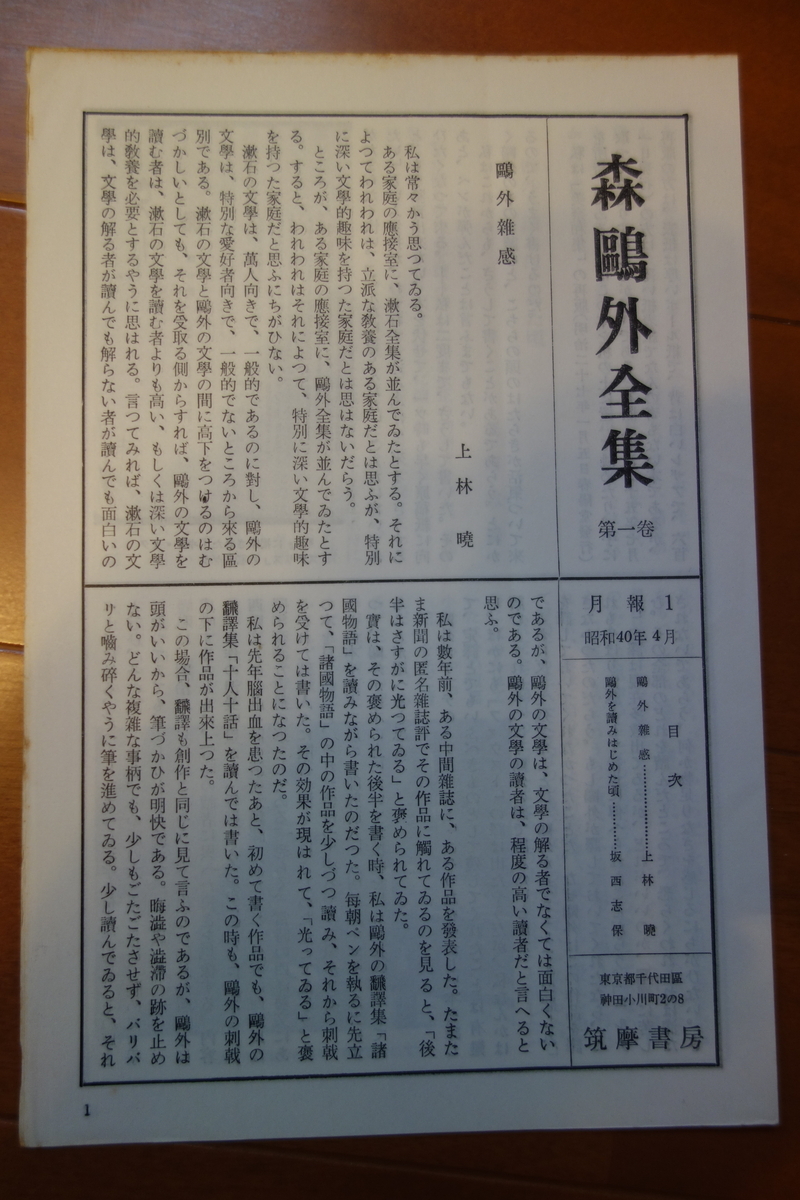 森鷗外全集
第一卷
月報1
昭和40年4月
目次
鷗外雜感…………………上林曉
鷗外を讀みはじめた頃…………坂西志保
東京都千代田區
神田小川町2の8
筑摩書房
鷗外雜感
上林曉
私は常々かう思つてゐる。
ある家庭の應接室に、漱石全集が並んでゐたとする。それに
よつてわれわれは、立派な教養のある家庭だとは思ふが、特別
に深い文學的趣味を持つた家庭だとは思はないだらう。
ところが、ある家庭の應接室に、鷗外全集が並んでゐたとす
る。すると、われわれはそれによつて、特別に深い文學的趣味
を持つた家庭だと思ふにちがひない。
漱石の文學は、萬人向きで、一般的であるのに對し、鷗外の
文學は、特別な愛好者向きで、一般的でないところから來る區
別である。漱石の文學と鷗外の文學の間に高下をつけるのはむ
づかしいとしても、それを受取る側からすれば、鷗外の文學を
讀む者は、漱石の文學を讀む者よりも高い、もしくは深い文學
的教養を必要とするやうに思はれる。言つてみれば、漱石の文
學は、文學の解る者が讀んでも解らない者が讀んでも面白いの
であるが、鷗外の文學は、文學の解る者でなくては面白くない
のである。鷗外の文學の讀者は、程度の高い讀者だと言へると
思ふ。
私は數年前、ある中間雜誌に、ある作品を發表した。たまた
ま新聞の匿名雜誌評でその作品に觸れてゐるのを見ると、「後
半はさすがに光つてゐる」と褒められてゐた。
實は、その褒められた後半を書く時、私は鷗外の飜譯集「諸
國物語」を讀みながら書いたのだつた。每朝ペンを執るに先立
つて、「諸國物語」の中の作品を少しづつ讀み、それから刺戟
を受けては書いた。その効果が現はれて、「光ってゐる」と褒
められることになつたのだ。
私は先年腦出血を患つたあと、初めて書く作品でも、鷗外の
飜譯集「十人十話」を讀んでは書いた。この時も、鷗外の刺戟
の下に作品が出來上つた。
この場合、飜譯も創作と同じに見て言ふのであるが、鷗外は
頭がいいから、筆づかひが明快である。晦澁や澁滯の跡を止め
ない。どんな複雜な事柄でも、少しもごたごたさせず、バリバ
リと嚙み碎くやうに筆を進めてゐる。少し讀んでゐると、それ
1